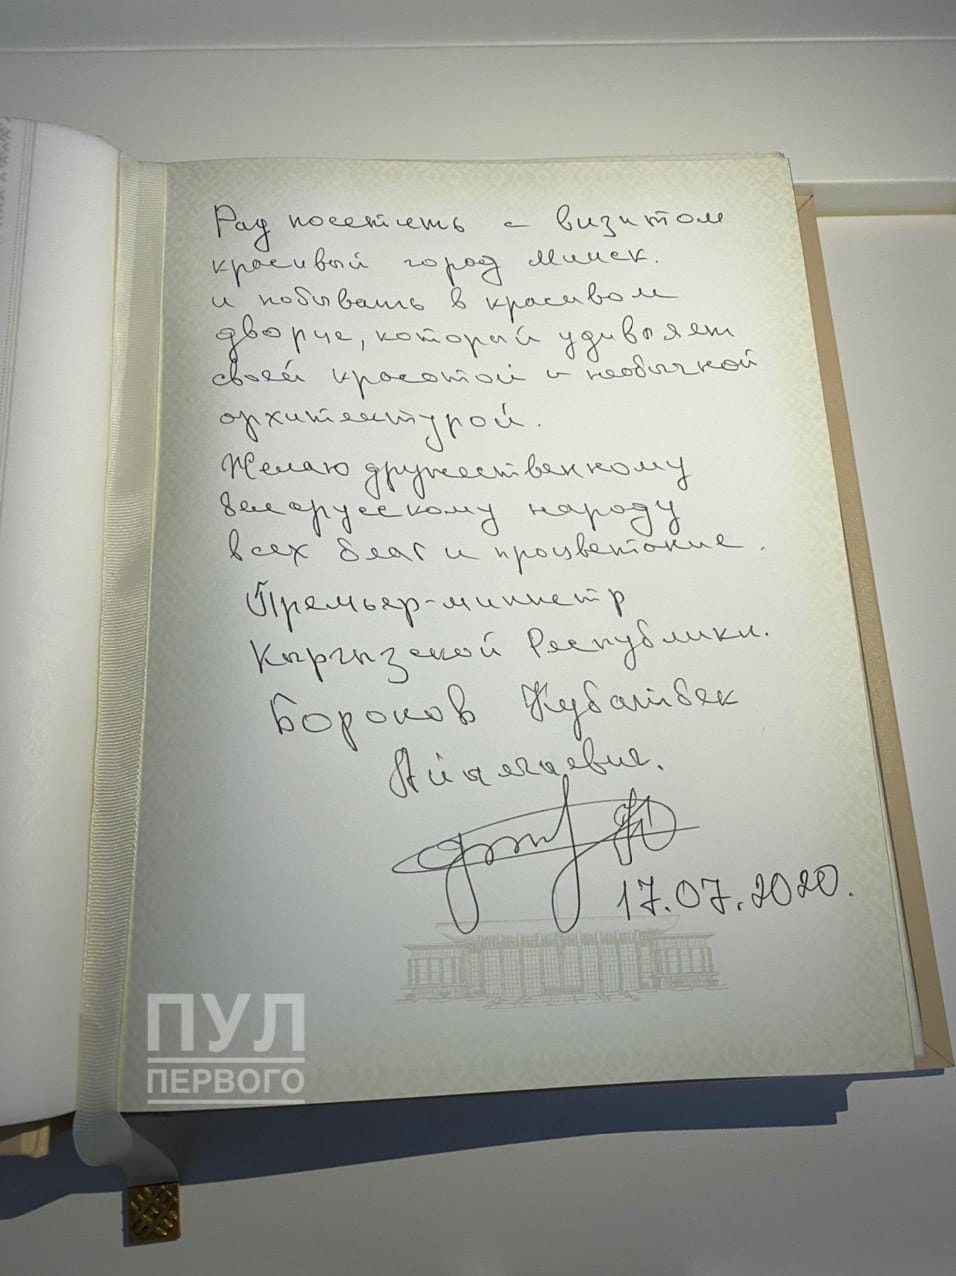 Рад посетить с визитом
красивый город Минск.
и побывать в красивом
дворце, который удивляет
своей красотой и необычной
архитектурой.
Желаю дружественному
белорусскому народу
всех благ и процветание.
Премьер-министр
Кыргызской Республики.
Боронов Кубатбек
Айылчиевич.
17.07.2020.
ПУЛ
ПЕРВОГО